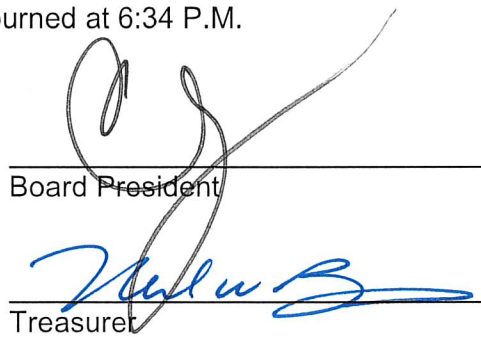 ourned at 6:34 P.M.
Board President
Treasurer